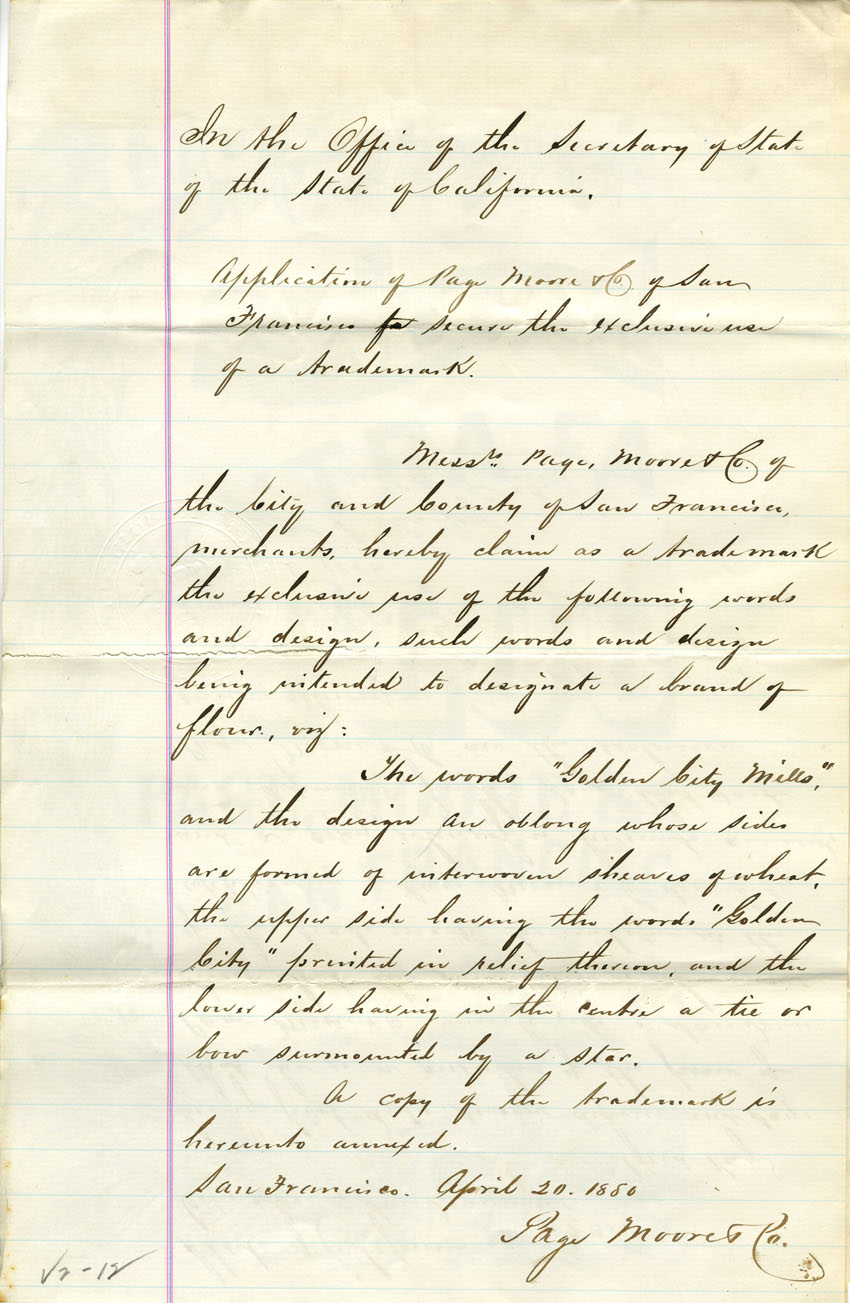 In the Office of the Secretary of State
of the State of California.
Application of Page Moore & Co. of San
Francisco to secure the exclusive use
of a trademark.
Messrs. Page, Moore & Co. of
the City and County of San Francisco,
merchants, hereby claim as a trademark
the exclusive use of the following words
and design, such words and design
being intended to designate a brand of
flour, viz:
The words "Golden City Mills",
and the design an oblong whose sides
are formed of interwoven sheaves of wheat,
the upper side having the words "Golden
City" printed in relief thereon, and the
lower side having in the centre a tie or
bow surmounted by a star.
A copy of the trademark is
hereunto annexed.
San Francisco. April 20. 1880
Page Moore & Co.